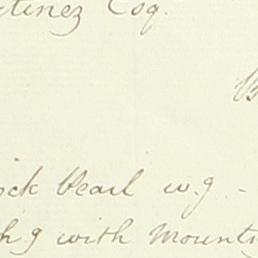 tinez Esq.
ck Pearl w.g -
h.g with Mounts